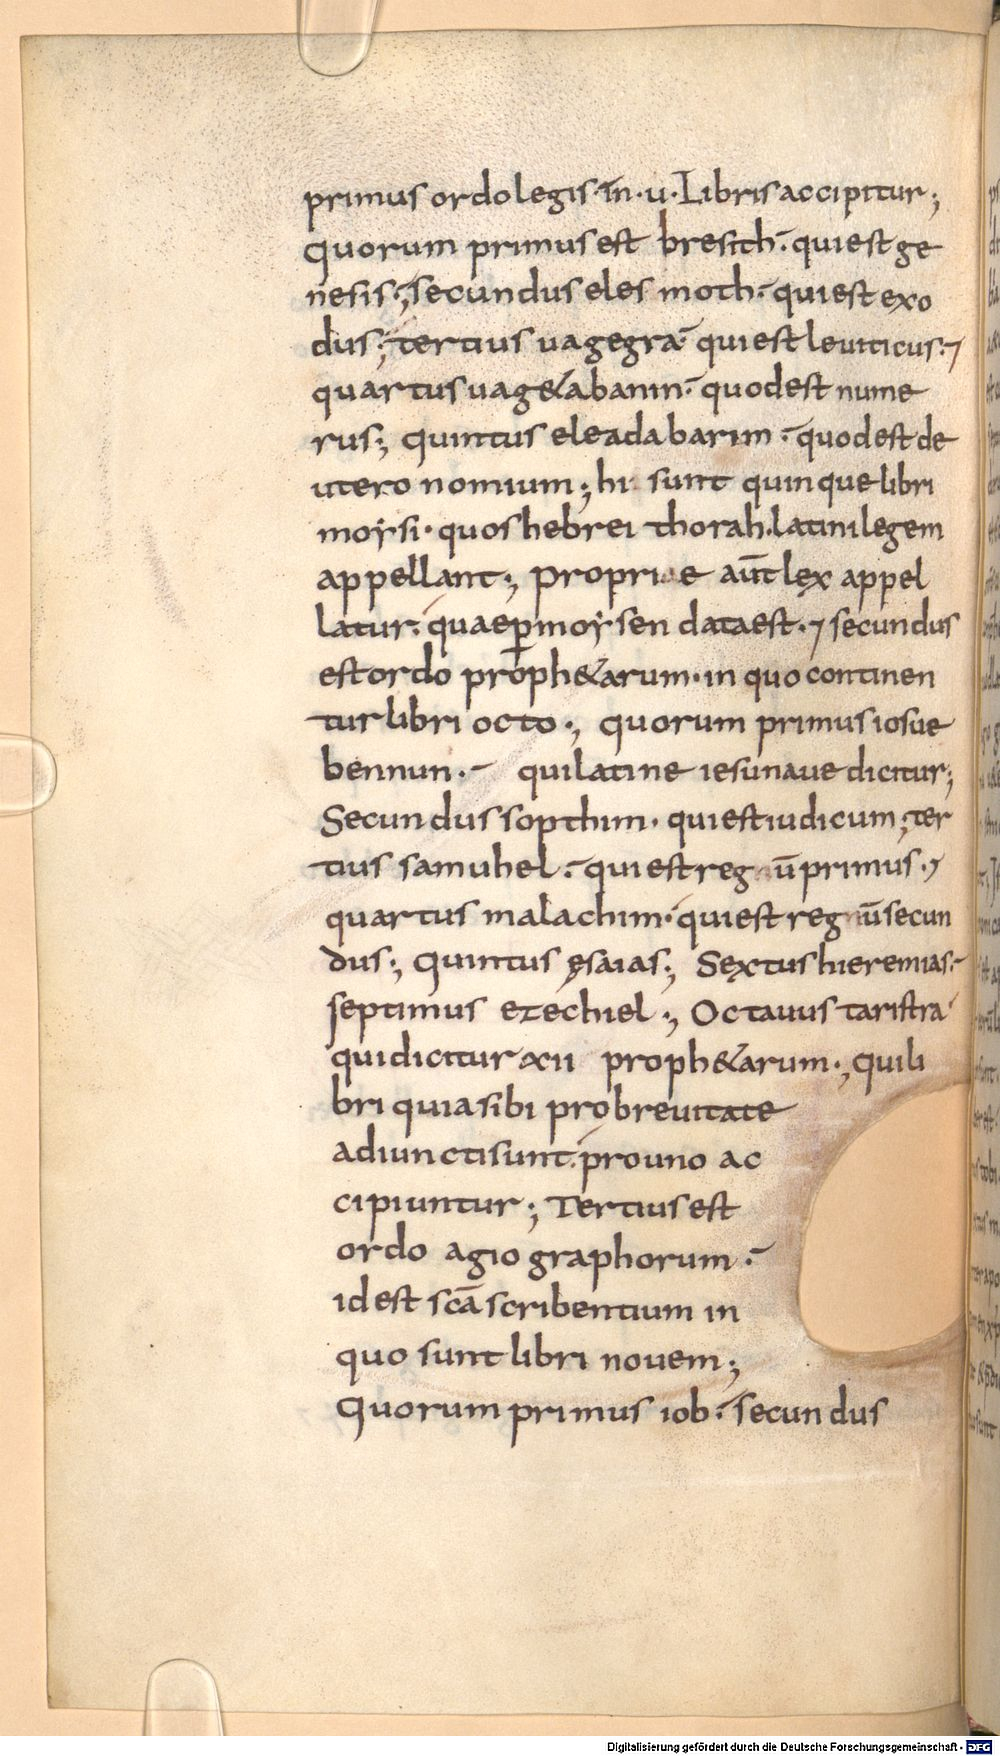 primus ordo legis in · u · Libris accipitur ;
Quorum primus est bresith · qui est ge
nesis · ; secundus eles moth · qui est exo
dus ; tertius uagegra · qui est leuiticus · ⁊
quartus uag&abanin · quod est nume
rus ; Quintus eleadabarim · quod est de
utero nomium ; hi sunt quinque libri
moysi · quos hebrei thorah · latini legem
appellant ; Propriae aūt lex appel
latur · quae ꝑ moysen data est · ⁊ secundus
est ordo proph&arum · in quo continen
tur libri octo · ; quorum primus iosue
bennun · - qui latine iesunaue dicitur ;
Secundus sopthim · qui est iudicum ; ter
tius samuhel · qui est reg ū primus · ⁊
quartus malachim · qui est reg nū secun
dus ; Quintus ęsaias ; Sextus hieremias ·
septimus ezechiel · ; Octauus taristra
qui dicitur xii proph&arum · ; qui li
bri quia sibi pro breuitate
adiuncti sunt · pro uno ac
cipiuntur ; Tertius est
ordo agio graphorum ·
id est scā scribentium in
quo sunt libri nouem ;
Quorum primus iob · secundus
Digitalisierung gefördert durch die Deutsche Forschungsgemeinschaft - DFG